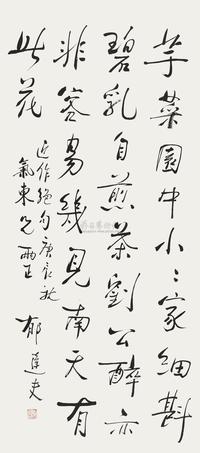 芋菜園中小〻家細斟
碧乳自煎茶劉公醉亦
非容易幾見南天有
此花
近作絕句庚辰秋
東兄
郁達夫